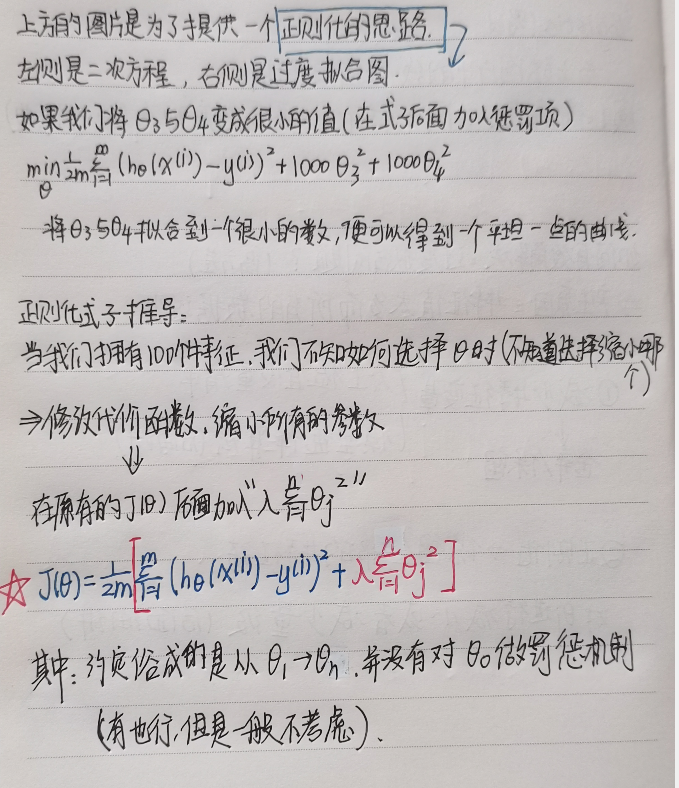 上方的图片是为了提供一个正则化的思路.
左侧是二次方程，右侧是过度拟合图.
如果我们将 θ₃与θ₄变成很小的值(在式子后面加入惩罚项)
min_θ 1/2m Σ_{i=1}^{m} (hθ(x⁽ⁱ⁾)-y⁽ⁱ⁾)² + 1000 θ₃² + 1000θ₄²
将θ₃与θ₄拟合到一个很小的数,便可以得到一个平坦一点的曲线.
正则化式子推导:
当我们拥有100个特征.我们不知如何选择θ时(不知道选择缩小哪个)
⇒修改代价函数.缩小所有的参数
⇓
在原有的J(θ)后面加入"λ Σ_{i=1}^{n} θj²"
☆ J(θ)= 1/2m [Σ_{i=1}^{m} (hθ(x⁽ⁱ⁾)-y⁽ⁱ⁾)² + λ Σ_{i=1}^{n} θj²]
其中: 约定俗成的是从 θ₁→θn.并没有对 θ₀做罚惩机制
(有也行,但是一般不考虑).